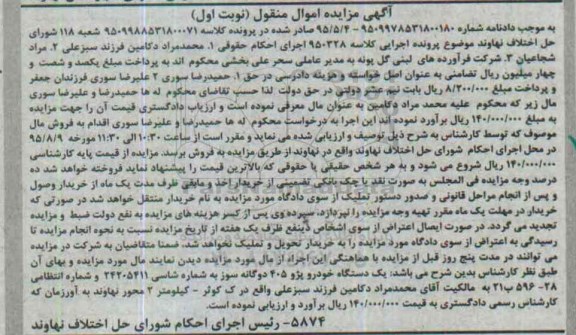 آگهی مزایده اموال منقول (نوبت اول)
به موجب دادنامه شماره ۹۵۰۹۹۷۸۵۳۱۸۰۰۱۸۰ - ۹۵/۵/۴ صادر شده در پرونده کلاسه ۹۵۰۹۹۸۸۵۳۱۸۰۰۰۷۱ شعبه ۱۱۸ شورای
حل اختلاف نهاوند موضوع پرونده اجرایی کلاسه ۹۵۰۳۲۸ اجرای احکام حقوقی ۱. محمدمراد دکامین فرزند سبزعلی ۲. مراد
شجاعیان ۳. شرکت فرآورده های لبنی گل پونه به مدیر عاملی سحر علی بخشی محکوم اند به پرداخت مبلغ یکصد و شصت و
چهار میلیون ریال تضامنی به عنوان اصل خواسته و هزینه دادرسی در حق ۱. حمیدرضا سوری ۲ علیرضا سوری فرزندان جعفر
و پرداخت مبلغ ۸/۲۰۰/۰۰۰ ریال بابت نیم عشر دولتی در حق دولت لذا حسب تقاضای محکوم له ها حمیدرضا و علیرضا سوری
مال زیر که محکوم علیه محمد مراد دکامین به عنوان مال معرفی نموده است و ارزیاب دادگستری قیمت آن را جهت مزایده
به مبلغ ۱۴۰/۰۰۰/۰۰۰ ریال برآورد نموده اند این اجرا به درخواست محکوم له ها حمیدرضا و علیرضا سوری اقدام به فروش مال
موصوف که توسط کارشناس به شرح ذیل توصیف و ارزیابی شده می نماید و مقرر است از ساعت ۱۰:۳۰ الی ۱۱:۳۰ مورخه ۹۵/۸/۹
در محل اجرای احکام شورای حل اختلاف نهاوند واقع در نهاوند از طریق مزایده به فروش برسد. مزایده از قیمت پایه کارشناسی
۱۴۰/۰۰۰/۰۰۰ ریال شروع می شود و به هر شخص حقیقی یا حقوقی که بالاترین قیمت را پیشنهاد نماید فروخته خواهد شد ده
درصد وجه مزایده فی المجلس به صورت نقد یا چک بانکی تضمینی از خریدار اخذ و مابقی ظرف مدت یک ماه از خریدار وصول
و پس از انجام مراحل قانونی و صدور دستور تملیک از سوی دادگاه مورد مزایده به نام خریدار منتقل خواهد شد در صورتی که
خریدار در مهلت یک ماه مقرر تهیه وجه مزایده را نپردازد، سپرده وی پس از کسر هزینه های مزایده به نفع دولت ضبط و مزایده
تجدید می گردد. در صورت ایصال اعتراض از سوی اشخاص ذینفع ظرف یک هفته از تاریخ مزایده نسبت به نحوه انجام مزایده تا
رسیدگی به اعتراض از سوی دادگاه مورد مزایده را به خریدار تحویل و تملیک نخواهد شد. ضمنا متقاضیان به شرکت در مزایده
می توانند در مدت پنج روز قبل از مزایده با هماهنگی این اجراء از مال مورد مزایده دیدن نمایند مال مورد مزایده و بهای آن
طبق نظر کارشناس بدین شرح می باشد: یک دستگاه خودرو پژو ۴۰۵ دوگانه سوز به شماره شاسی ۲۴۲۰۵۴۱۱ و شماره انتظامی
۲۸- ۵۹۶ ب ۲۱ به مالکیت آقای محمدمراد دکامین فرزند سبزعلی واقع در ک کوثر - کیلومتر ۲ محور نهاوند به آورزمان که
کارشناس رسمی دادگستری به قیمت ۱۴۰/۰۰۰/۰۰۰ ریال برآورد و ارزیابی نموده است.
۵۸۷۴- رئیس اجرای احکام شورای حل اختلاف نهاوند